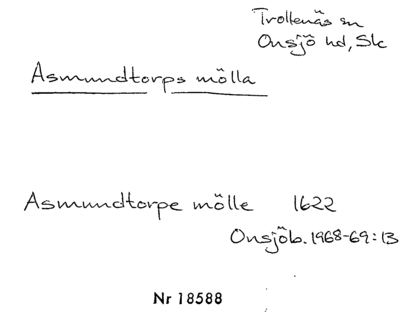 Trollenäs sn
Onsjö hd, Sk
Asmundtorps mölla
Asmundtorpe mölle 1622
Onsjöb. 1968-69:13
Nr 18588